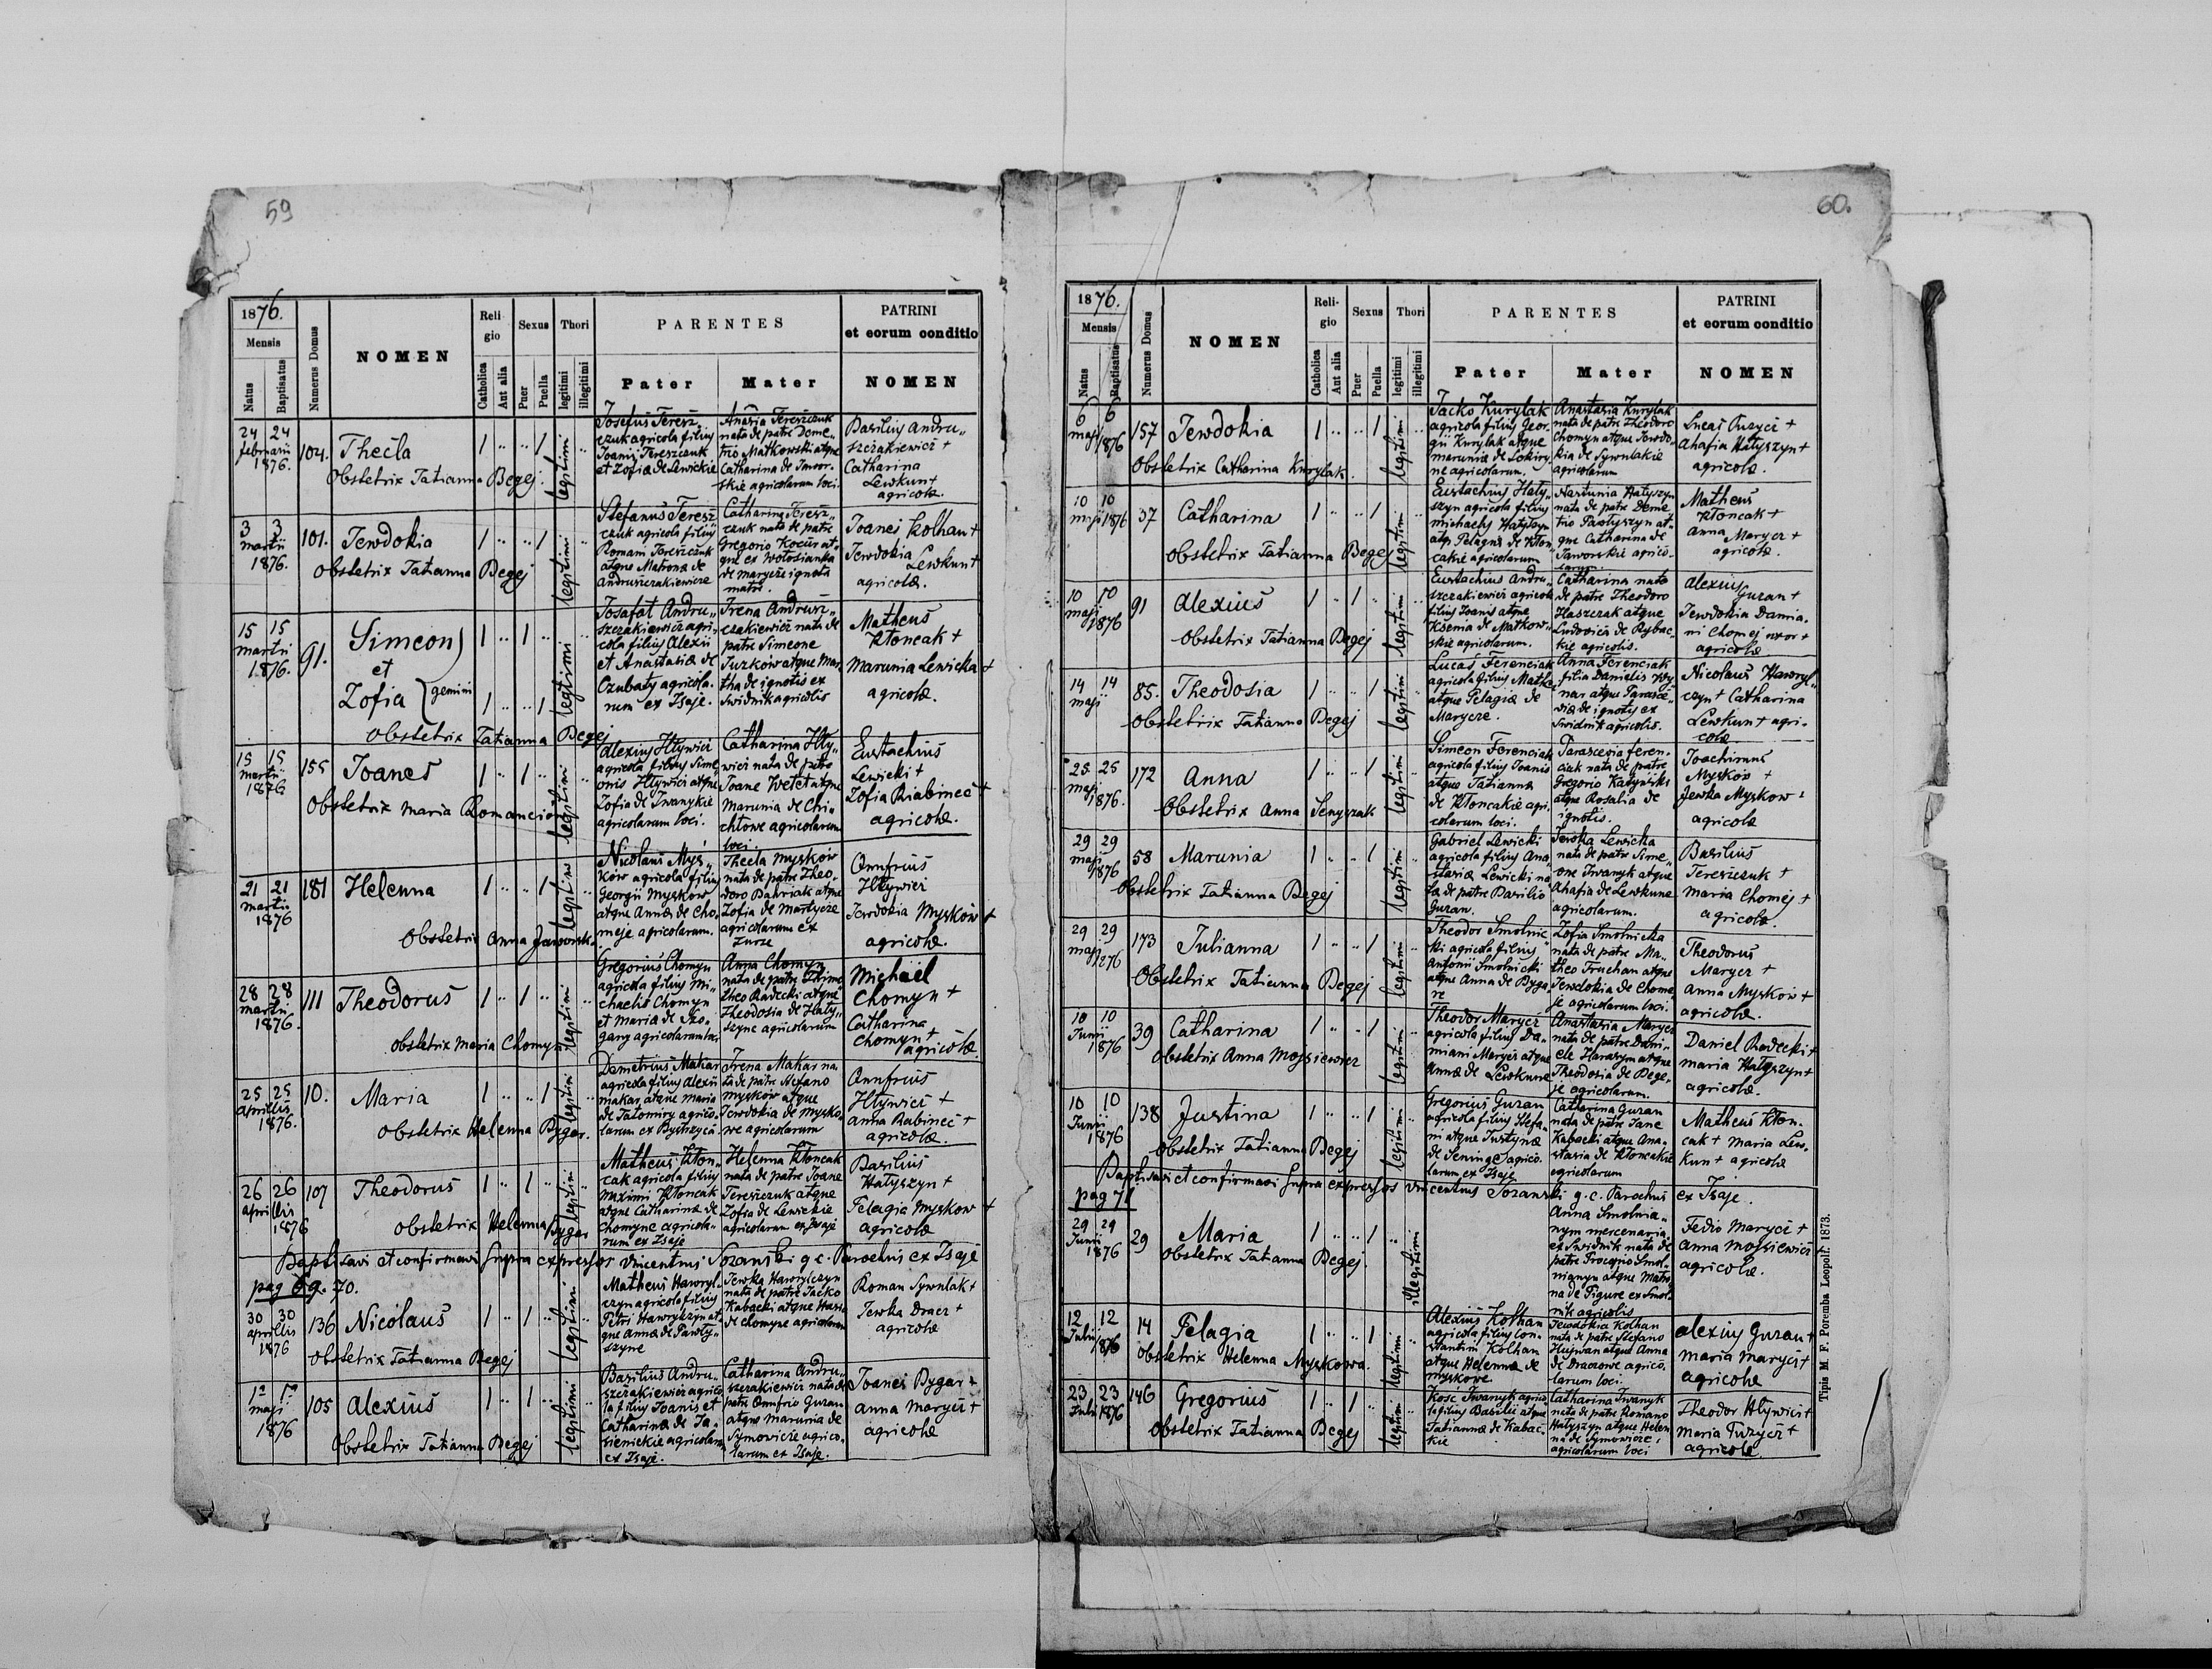 59
1876.
Mensis
Natus
Baptisatus
Numerus Domus
NOMEN
Reli
gio
Catholica
Aut alia
Sexus
Puer
Puella
Thori
legitimi
illegitimi
PARENTES
Pater
Mater
PATRINI
et eorum conditio
NOMEN
24 24
februarii
1876.
104.
Thecla
1 .. .. 1
legitimi
Obstetrix Tatianna Begej.
Josefus Teresz„
czuk agricola filius
Joanis Tereszczuk
et Zofiæ de Lewickie
Anasia Tereszczuk
nata de patre Deme„
trio Matkowski atque
Catharina de Jawor„
skie agricolarum loci.
Basilius Andru„
szczakiewicz +
Catharina
Lewkun +
agricolæ.
3 3
martii
1876.
101.
Jewdokia
1 .. .. 1
legitimi
Obstetrix Tatianna Begej
Stefanus Teresz„
czuk agricola filius
Romani Tereszczuk
atque Matronæ de
Andruszczakiewicze
Catharina Teresz„
czuk nata de patre
Gregorio Kocur at„
que ex Wołosianka
de Marycze ignota
matre.
Joanes Kolhan +
Jewdokia
Lewkun +
agricolæ.
15 15
martii
1876.
91.
Simeon
et
Zofia
gemini
1 .. 1 ..
1 .. .. 1
legitimi
Obstetrix Tatianna Begej
Josafat Andru„
szczakiewicz agri„
cola filius Alexii
et Anastasiæ de
Czubaty agricola„
rum ex Isaje.
Irena Andrusz„
czakiewicz nata de
patre Simeone
Jurków atque Mar„
tha de ignotis ex
Swidnik agricolis
Matheus
Kłoncak +
Marunia Lewicka +
agricolæ.
15 15
martii
1876
155
Joanes
1 .. 1 ..
legitimi
Obstetrix Maria Romanciow
Alexius Hływici
agricola filius Sime„
onis Hływici atque
Zofia de Iwanykie
agricolarum loci.
Catharina Hły„
wici nata de patre
Joane Wetet atque
Marunia de Chri„
chtowe agricolarum
loci.
Eustachius
Lewicki +
Zofia Riabineć +
agricolæ.
21 21
martii
1876
181
Helenna
1 .. .. 1
legitimi
Obstetrix Anna Jaworska
Nicolaus Mys„
ków agricola filius
Georgii Mysków
atque Annæ de Cho„
meje agricolarum.
Thecla Mysków
nata de patre Theo„
doro Bahriak atque
Zofia de Martycze
agricolarum ex
Zurze
Onnfrius
Hływici
Jewdokia Mysków +
agricolæ.
28 28
martii
1876.
111
Theodorus
1 .. 1 ..
legitimi
Obstetrix Maria Chomyn
Gregorius Chomyn
agricola filius Mi„
chaelis Chomyn
et Maria de Sko„
gary agricolarum loci
Anna Chomyn
nata de patre Thimo„
theo Radecki atque
Theodosia de Haty„
szyne agricolarum
Michaël
Chomyn +
Catharina
Chomyn +
agricolæ.
25 25
aprillis
1876.
10.
Maria
1 .. .. 1
legitimi
Obstetrix Helenna Bygar.
Demetrius Makar
agricola filius Alexii
Makar, atque Maria
de Tatomiry agrico„
larum ex Bystrzyca
Irena Makar na„
ta de patre Stefano
Mysków atque
Jewdokia de Mysko„
we agricolarum
Onnfrius
Hływici +
Anna Rabineć +
agricolæ.
26 26
aprillis
1876
107
Theodorus
1 .. 1 ..
legitimi
Obstetrix Helenna Bygar
Matheus Kłon„
cak agricola filius
Maximi Kłoncak
atque Catharinæ de
Chomyne agricola„
rum ex Isaje
Helenna Kłoncak
nata de patre Joane
Tereszczuk atque
Zofia de Lewickie
agricolarum ex Isaje
Basilius
Hatyszyn +
Pelagia Myskow +
agricolæ
Baptisavi et confirmavi supra expressos Vincentius Sozanski g. c. Parochus ex Isaje
pag 69. 70.
30 30
aprillis
1876
136
Nicolaus
1 .. 1 ..
legitimi
Obstetrix Tatianna Begej
Matheus Hawryl„
czyn agricola filius
Petri Hawrylczyn at„
que Annæ de Pawły„
szyne
Jewka Hawrylczyn
nata de patre Jacko
Kabacki atque Hasia
de Chomyne agricolarum
Roman Sywulak +
Jewka Dracz +
agricolæ
1ª 1ª
maji
1876
105
Alexius
1 .. 1 ..
legitimi
Obstetrix Tatianna Begej
Basilius Andru„
szczakiewicz agrico„
la filius Joanis et
Catharinæ de Ja„
siemickie agricolarum
ex Isaje.
Catharina Andru„
szczakiewicz nata de
patre Onnfrio Guran
atque Marunia de
Symowicze agrico„
larum ex Isaje.
Joanes Bygar +
Anna Marycz +
agricolæ
60.
1876.
Mensis
Natus
Baptisatus
Numerus Domus
NOMEN
Reli-
gio
Catholica
Aut alia
Sexus
Puer
Puella
Thori
legitimi
illegitimi
PARENTES
Pater
Mater
PATRINI
et eorum conditio
NOMEN
6 6
maji
1876
157
Jewdokia
1 .. .. 1
legitimi
Obstetrix Catharina Kurylak.
Jacko Kurylak
agricola filius Geor„
gii Kurylak atque
Marunia de Lokiry„
ne agricolarum.
Anastasia Kurylak
nata de patre Theodoro
Chomyn atque Jewdo„
kia de Sywulakie
agricolarum
Lucas Puzycz +
Ahafia Hatyszyn +
agricolæ.
10 10
maji 1876
37
Catharina
1 .. .. 1
legitimi
Obstetrix Tatianna Begej
Eustachius Haty„
szyn agricola filius
Michaelis Hatyszyn
atq. Pelagiæ de Kłon„
cakie agricolarum
Nastunia Hatyszyn
nata de patre Deme„
trio Pawłyszyn at„
que Catharina de
Jaworskie agrico„
larum.
Matheus
Kłoncak +
Anna Marycz +
agricolæ.
10 10
maji
1876
91
Alexius
1 .. 1 ..
legitimi
Obstetrix Tatianna Begej
Eustachius Andru„
szczakiewicz agricola
filius Joanis atque
Ksenia de Matkow„
skie agricolarum.
Catharina nata
de patre Theodoro
Haszczak atque
Ludovica de Rybac„
kie agricolis.
Alexius
Guran +
Jewdokia Damia„
ni Chomej uxor +
agricolæ
14 14
maji
85.
Theodosia
1 .. .. 1
legitimi
Obstetrix Tatianna Begej
Lucas Ferenciak
agricola filius Matko
atque Pelagiæ de
Marycze.
Anna Ferenciak
filia Danielis Wy„
nar atque Parasce„
viæ de ignotis ex
Swidnik agricolis.
Nicolaus Hawryl„
czyn + Catharina
Lewkun + agri„
colæ
25 25
maji
1876.
172
Anna
1 .. .. 1
legitimi
Obstetrix Anna Senyszak
Simeon Ferenciak
agricola filius Joanis
atque Tatianna
de Kłoncakie agri„
colarum loci.
Parascevia Feren„
ciak nata de patre
Gregorio Katyński
atque Rosalia de
ignotis.
Joachimus
Mysków +
Jewka Myskow +
agricolæ
29 29
maji
1876
58
Marunia
1 .. .. 1
legitimi
Obstetrix Tatianna Begej
Gabriel Lewicki
agricola filius Ana„
stasiæ Lewicki na„
ta de patre Basilio
Guran.
Jewka Lewicka
nata de patre Sime„
one Iwanyk atque
Ahafia de Lewkune
agricolarum.
Basilius
Tereszczuk +
Maria Chomej +
agricolæ.
29 29
maji
1876
173
Julianna
1 .. .. 1
legitimi
Obstetrix Tatianna Begej
Theodor Smolnic„
ki agricola filius
Antonii Smolnicki
atque Anna de Byga„
re
Zofia Smolnicka
nata de patre Ma„
theo Truchan atque
Jewdokia de Chome„
je agricolarum loci.
Theodorus
Marycz +
Anna Myskow +
agricolæ.
10 10
Junii
1876
39
Catharina
1 .. .. 1
legitimi
Obstetrix Anna Mojsiewicz
Theodor Marycz
agricola filius Da„
miani Marycz atque
Annæ de Lewkune
Anastasia Marycz
nata de patre Dani„
ele Harasym atque
Theodosia de Bege„
je agricolarum.
Daniel Radecki +
Maria Hatyszyn +
agricolæ.
10 10
Junii
1876
138
Justina
1 .. .. 1
legitimi
Obstetrix Tatianna Begej
Gregorius Guran
agricola filius Stefa„
ni atque Justynæ
de Seninge agrico„
larum ex Isaje
Catharina Guran
nata de patre Jane
Kabacki atque Ana„
stasia de Kłoncakie
agricolarum
Matheus Kłon„
cak + Maria Lew„
kun + agricolæ
Baptisavi et confirmavi supra expressos Vincentius Sozanski g. c. Parochus ex Isaje.
pag 71
29 29
Junii
1876
29
Maria
1 .. .. 1
illegitimi
Obstetrix Tatianna Begej.
Anna Smolnia„
nym mercenaria
ex Swidnik nata de
patre Procopio Smol„
nianyn atque Matro„
na de Figure ex Smol„
nik agricolis
Fedio Marycz +
Anna Mojsiewicz
agricolæ.
12 12
Julii
1876
14
Pelagia
1 .. .. 1
legitimi
Obstetrix Helenna Myskowa.
Alexius Kolhan
agricola filius Con„
stantini Kolhan
atque Helennæ de
Myskowe
Jewdokia Kolhan
nata de patre Stefano
Hujwan atque Anna
de Draczowe agrico„
larum loci.
Alexius Guran +
Maria Marycz +
agricolæ
23 23
Julii
1876
146
Gregorius
1 .. 1 ..
legitimi
Obstetrix Tatianna Begej
Kość Iwanyk agrico„
la filius Basilii atque
Tatiannæ de Kabac„
kie
Catharina Iwanyk
nata de patre Romano
Hatyszyn atque Helen„
na de Symowicze
agricolarum loci
Theodor Hływici +
Maria Puzycz +
agricolæ.
Tipis M. F. Poremba Leopoli. 1873.